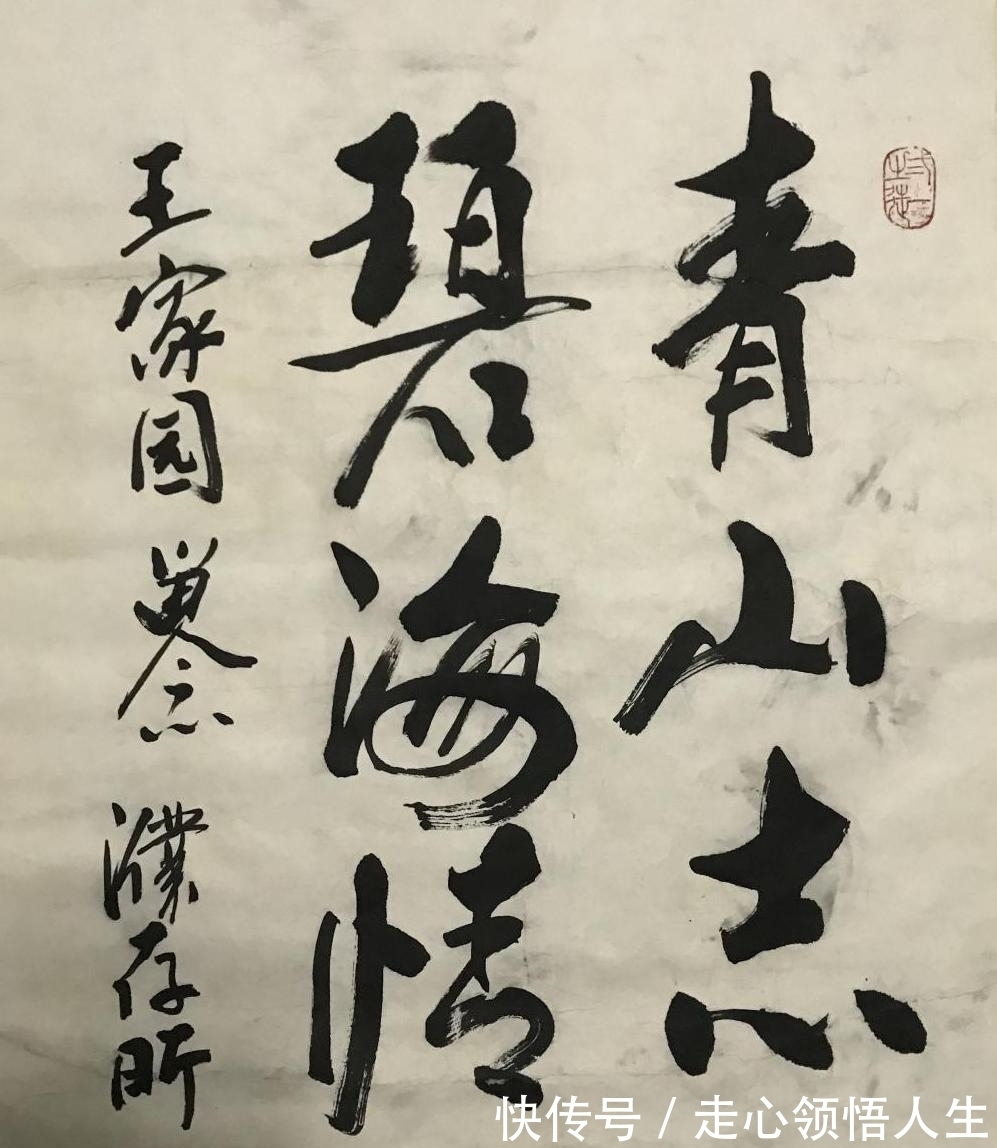 青山志
碧海情
王家园 留念 濮存昕
快传号 / 走心领悟人生